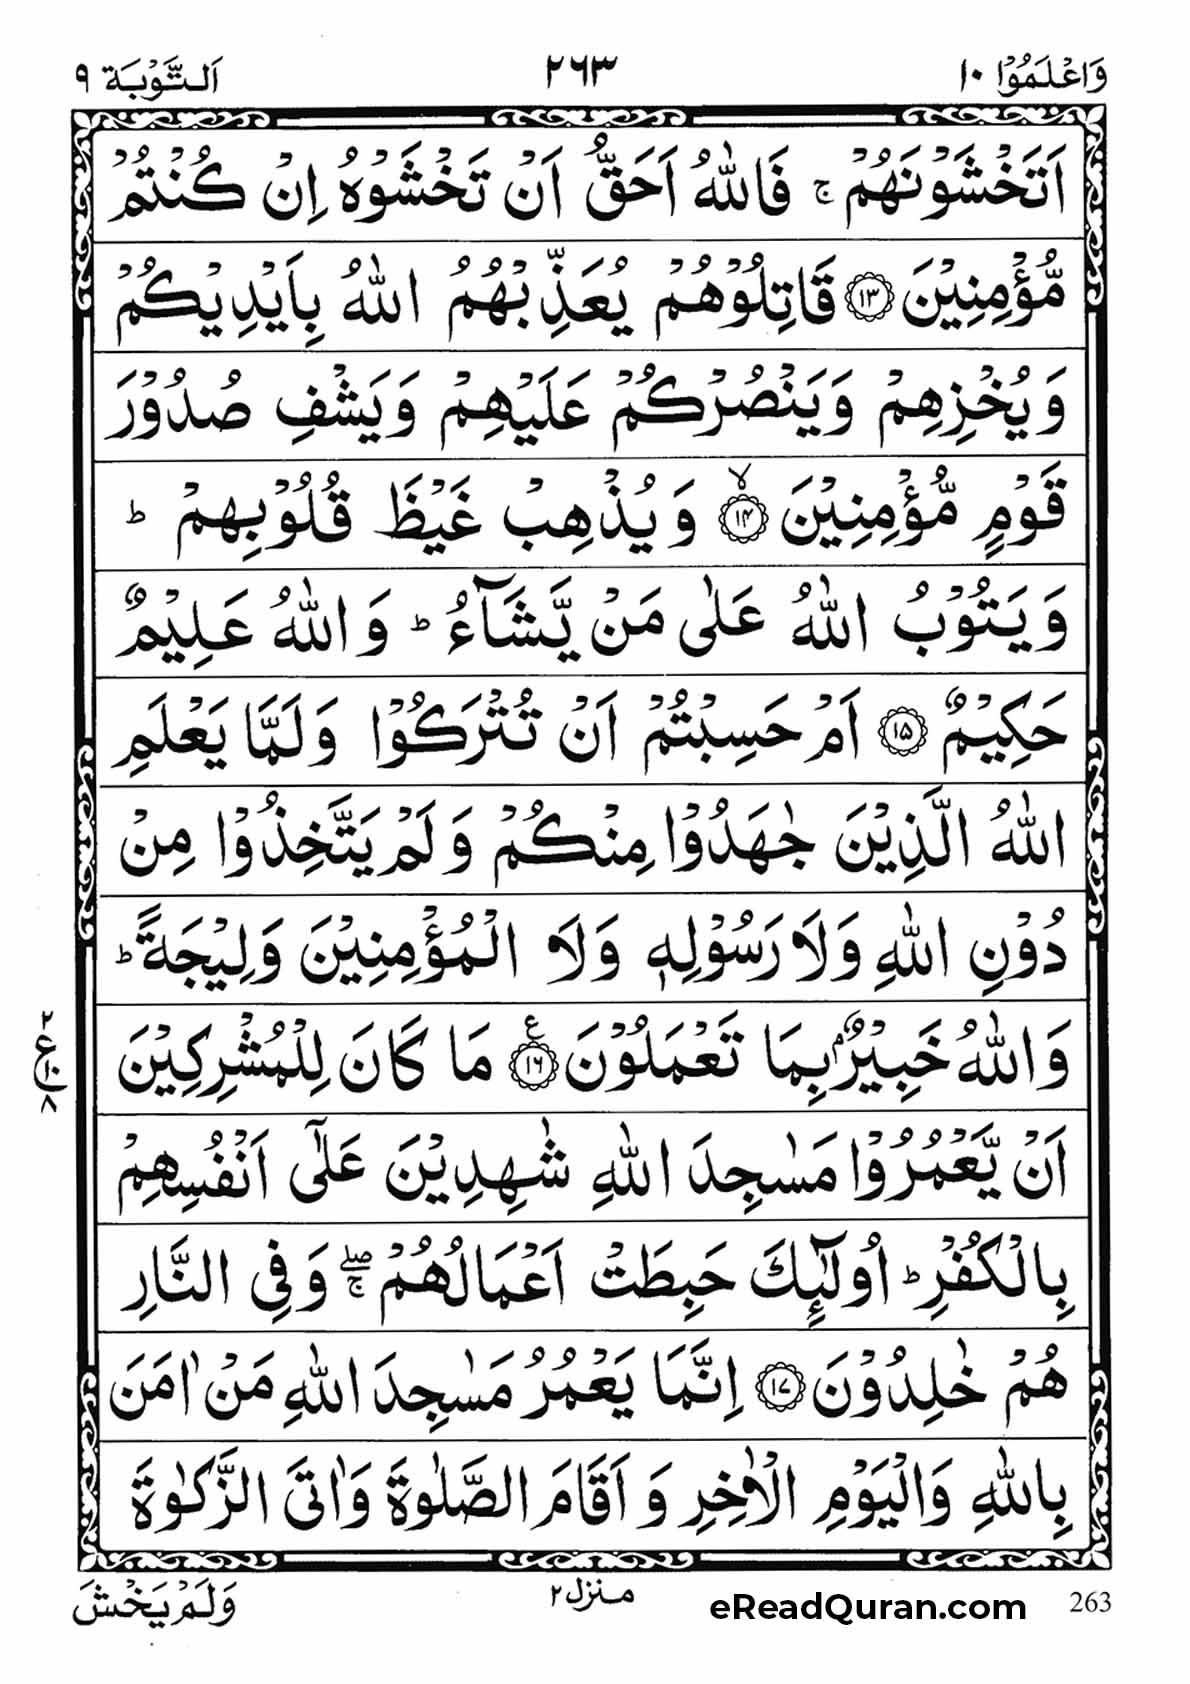 وَاعْلَمُوْۤا ١٠ ٢٦٣ اَلتَّوْبَة ٩
اَتَخْشَوْنَهُمْ ۚ فَاللّٰهُ اَحَقُّ اَنْ تَخْشَوْهُ اِنْ كُنْتُمْ
مُّؤْمِنِيْنَ ﴿١٣﴾ قَاتِلُوْهُمْ يُعَذِّبْهُمُ اللّٰهُ بِاَيْدِيْكُمْ
وَيُخْزِهِمْ وَيَنْصُرْكُمْ عَلَيْهِمْ وَيَشْفِ صُدُوْرَ
قَوْمٍ مُّؤْمِنِيْنَ ﴿١٤﴾ۙ وَيُذْهِبْ غَيْظَ قُلُوْبِهِمْ ؕ
وَيَتُوْبُ اللّٰهُ عَلٰى مَنْ يَّشَآءُ ؕ وَاللّٰهُ عَلِيْمٌ
حَكِيْمٌ ﴿١٥﴾ اَمْ حَسِبْتُمْ اَنْ تُتْرَكُوْا وَلَمَّا يَعْلَمِ
اللّٰهُ الَّذِيْنَ جٰهَدُوْا مِنْكُمْ وَلَمْ يَتَّخِذُوْا مِنْ
دُوْنِ اللّٰهِ وَلَا رَسُوْلِهٖ وَلَا الْمُؤْمِنِيْنَ وَلِيْجَةً ؕ
وَاللّٰهُ خَبِيْرٌۢ بِمَا تَعْمَلُوْنَ ﴿١٦﴾ع مَا كَانَ لِلْمُشْرِكِيْنَ
٢ ع ١٠ ٨
اَنْ يَّعْمُرُوْا مَسٰجِدَ اللّٰهِ شٰهِدِيْنَ عَلٰٓى اَنْفُسِهِمْ
بِالْكُفْرِ ؕ اُولٰٓئِكَ حَبِطَتْ اَعْمَالُهُمْ ۖۚ وَفِى النَّارِ
هُمْ خٰلِدُوْنَ ﴿١٧﴾ اِنَّمَا يَعْمُرُ مَسٰجِدَ اللّٰهِ مَنْ اٰمَنَ
بِاللّٰهِ وَالْيَوْمِ الْاٰخِرِ وَ اَقَامَ الصَّلٰوةَ وَاٰتَى الزَّكٰوةَ
وَلَمْ يَخْشَ منزل ٢ eReadQuran.com 263